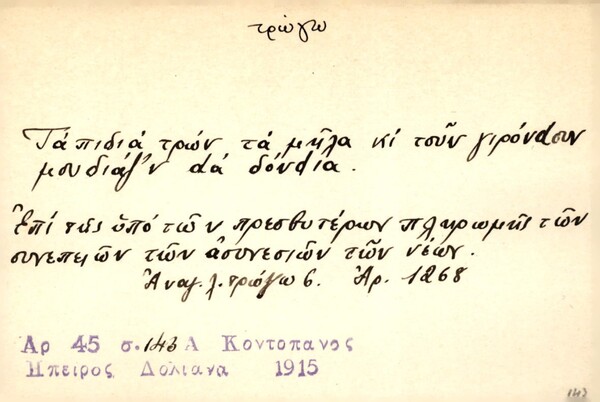 τρώγω
Τά πιδιά τρών τά μῆλα κί τσοῦν γιρόνdσουν
μουδιάζ'ν dά δόνdια.
Ἐπί τῆς ὑπό τῶν πρεσβυτέρων πληρωμῆς τῶν
συνεπειῶν τῶν ἀσυνεσιῶν τῶν νέων.
Ἀναγ. λ. τρώγω 6. Ἀρ. 1268
Αρ 45 σ. 143 Α Κοντοπανος
Ηπειρος Δολιανα 1915
143